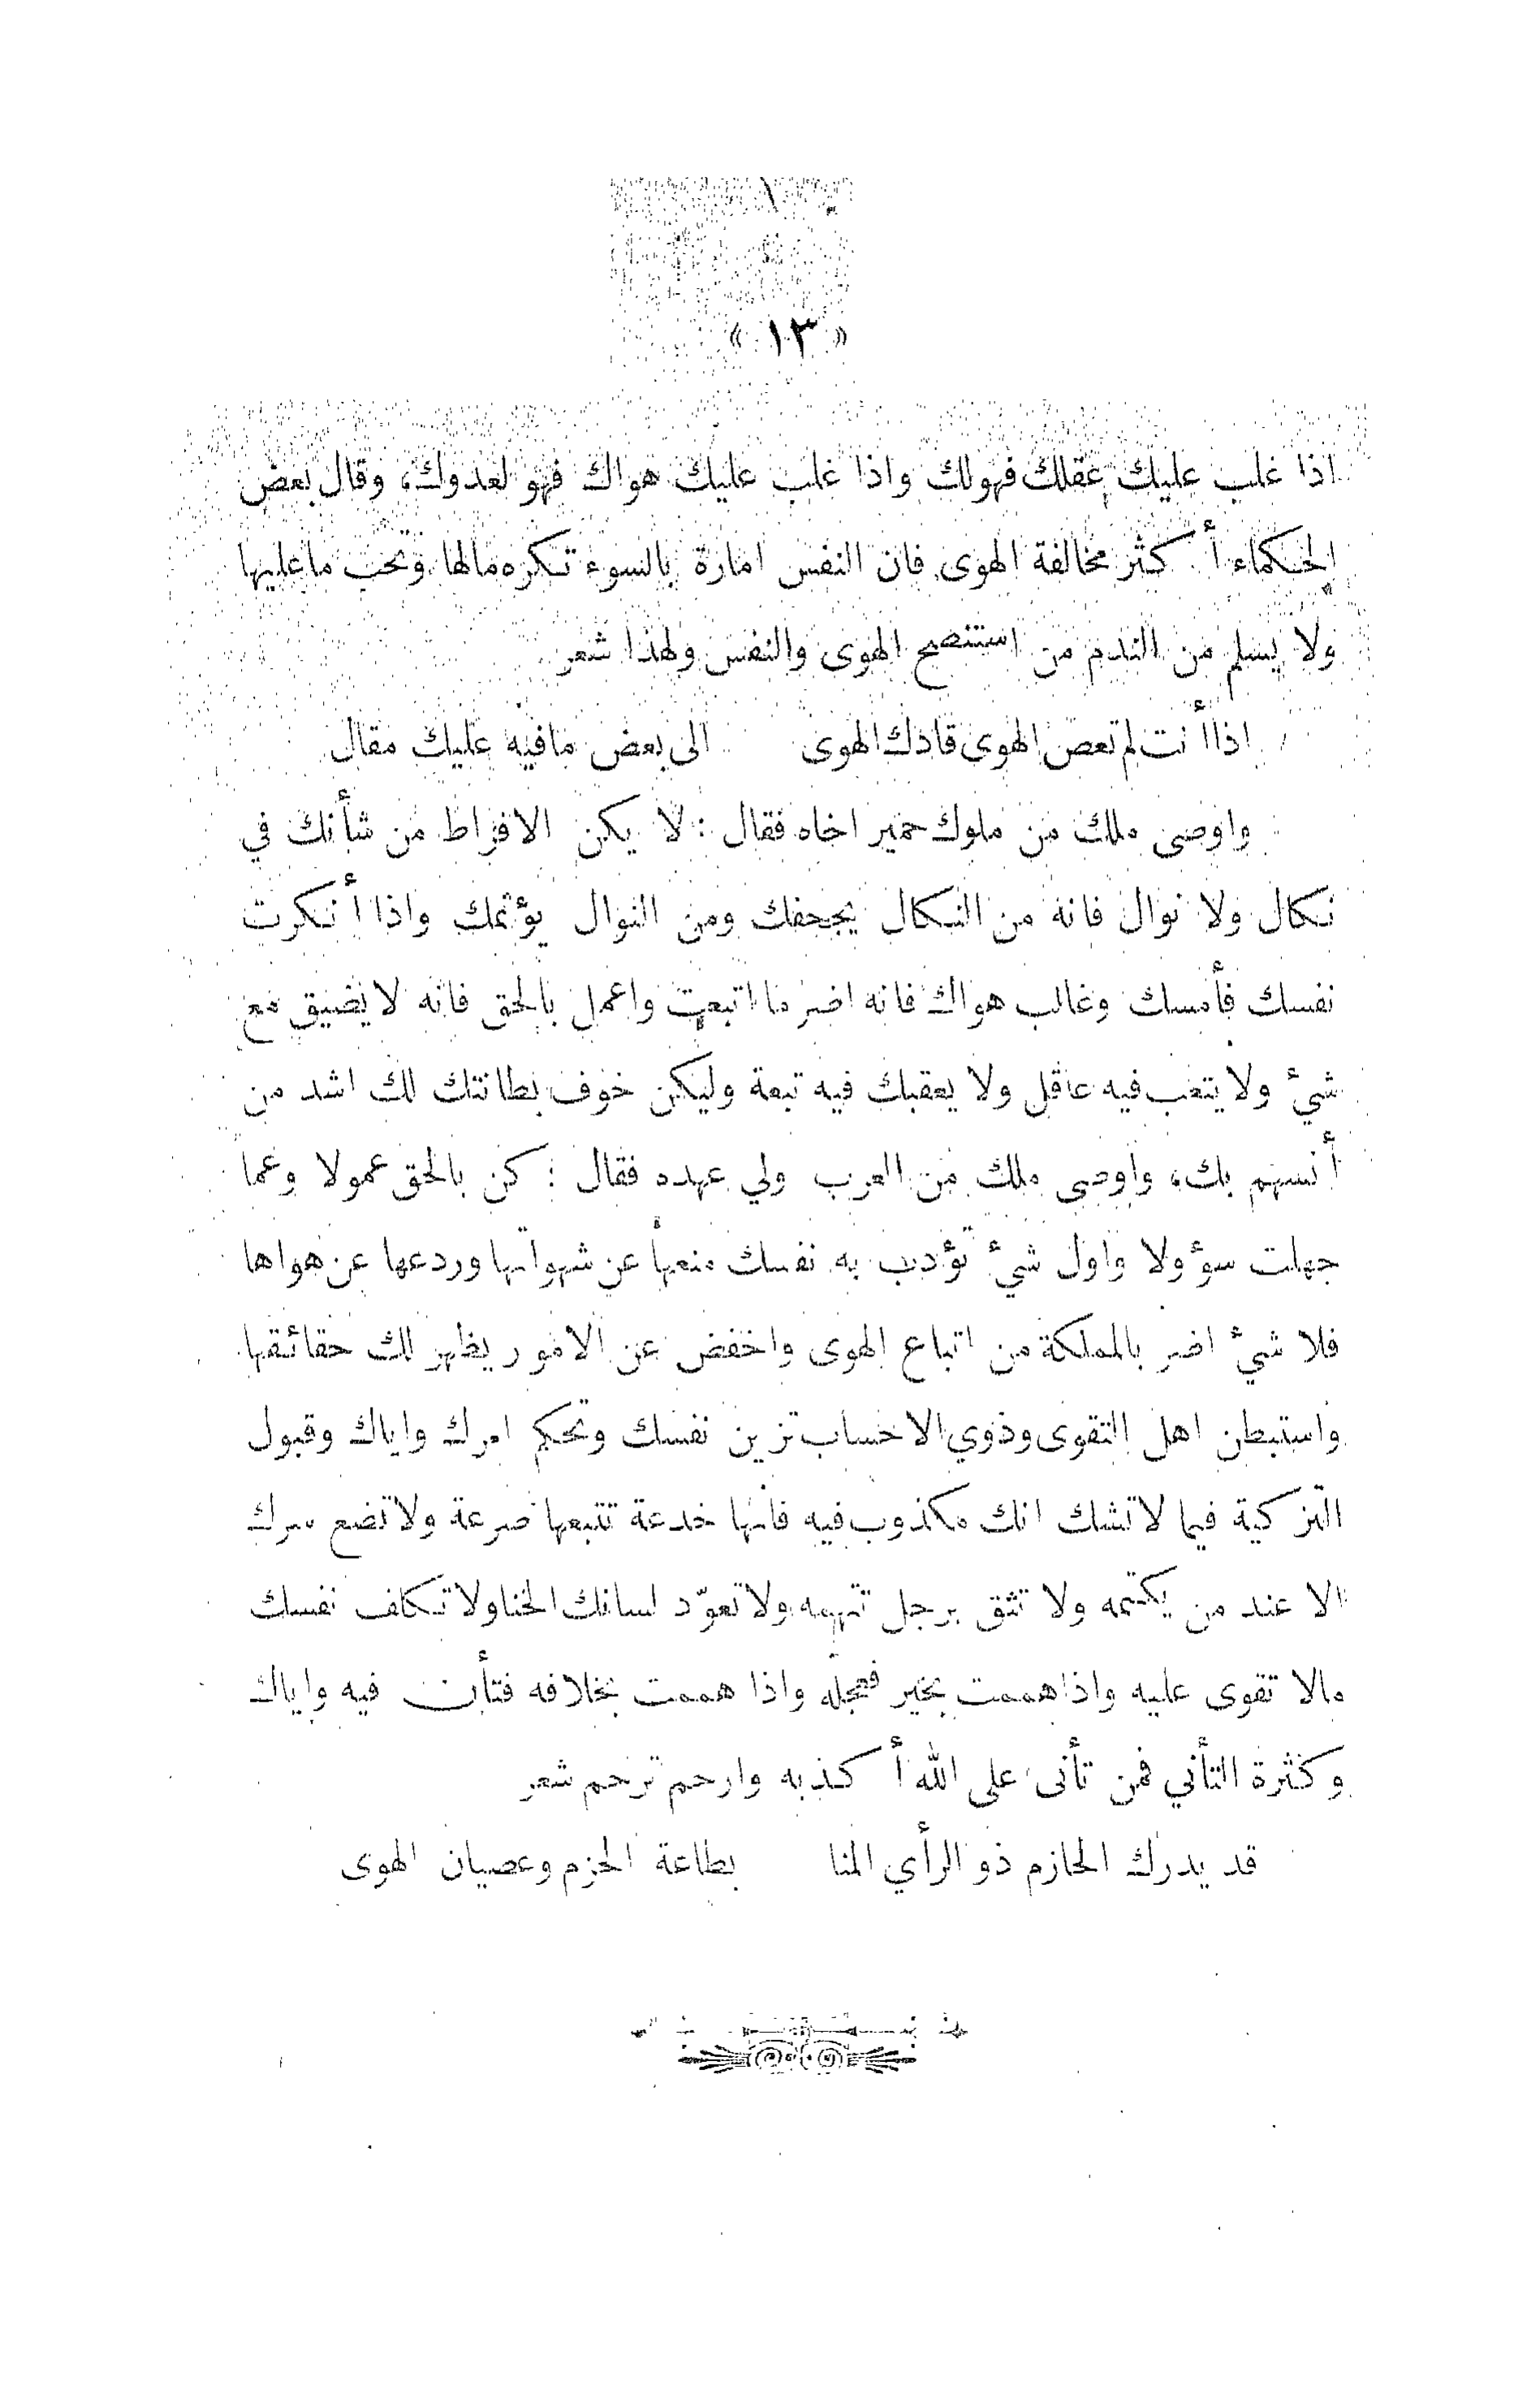 « ١٣ »
اذا غلب عليك عقلك فهولك واذا غلب عليك هواك فهو لعدوك، وقال بعض
الحكماء أكثر مخالفة الهوى فان النفس امارة بالسوء تكره مالها وتحب ماعليها
ولا يسلم من الندم من استنصح الهوى والنفس ولهذا شعر
اذا أنت لم تعص الهوى قادك الهوى الى بعض مافيه عليك مقال
واوصى ملك من ملوك حمير اخاه فقال : لا يكن الافراط من شأنك في
نكال ولا نوال فانه من النكال يجحفك ومن النوال يؤثمك واذا أنكرت
نفسك فأمسك وغالب هواك فانه اضر ما اتبعت واعمل بالحق فانه لا يضيق مع
شيء ولا يتعب فيه عاقل ولا يعقبك فيه تبعة وليكن خوف بطانتك لك اشد من
أنسهم بك، واوصى ملك من العرب ولي عهده فقال : كن بالحق عمولا وعما
جهلت سؤولا واول شيء تؤدب به نفسك منعها عن شهواتها وردعها عن هواها
فلا شيء اضر بالمملكة من اتباع الهوى واخفض عن الامور يظهر لك حقائقها
واستبطن اهل التقوى وذوي الاحساب تزين نفسك وتحكم امرك واياك وقبول
التزكية فيما لا تشك انك مكذوب فيه فانها خدعة تتبعها صرعة ولا تضع سرك
الا عند من يكتمه ولا تثق برجل تتهمه ولا تعوّد لسانك الخنا ولا تكلف نفسك
مالا تقوى عليه واذا هممت بخير فعجله واذا هممت بخلافه فتأن فيه واياك
وكثرة التأني فمن تأنى على الله أكذبه وارحم ترحم شعر
قد يدرك الحازم ذو الرأي المنا بطاعة الحزم وعصيان الهوى